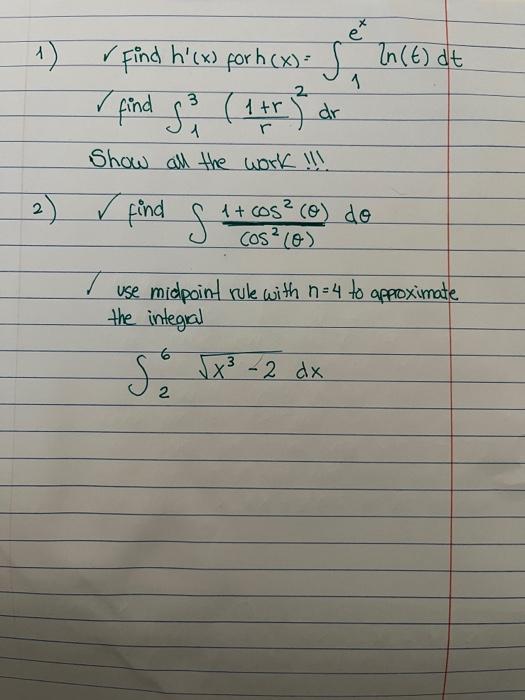 1) ✓ Find h'(x) for h(x) = ∫₁^{e^x} ln(t) dt
✓ find ∫₁³ ((1+r)/r)² dr
Show all the work !!!
2) ✓ find ∫ (1 + cos²(θ))/(cos²(θ)) dθ
✓ use midpoint rule with n=4 to approximate
the integral
∫₂⁶ √(x³ - 2) dx